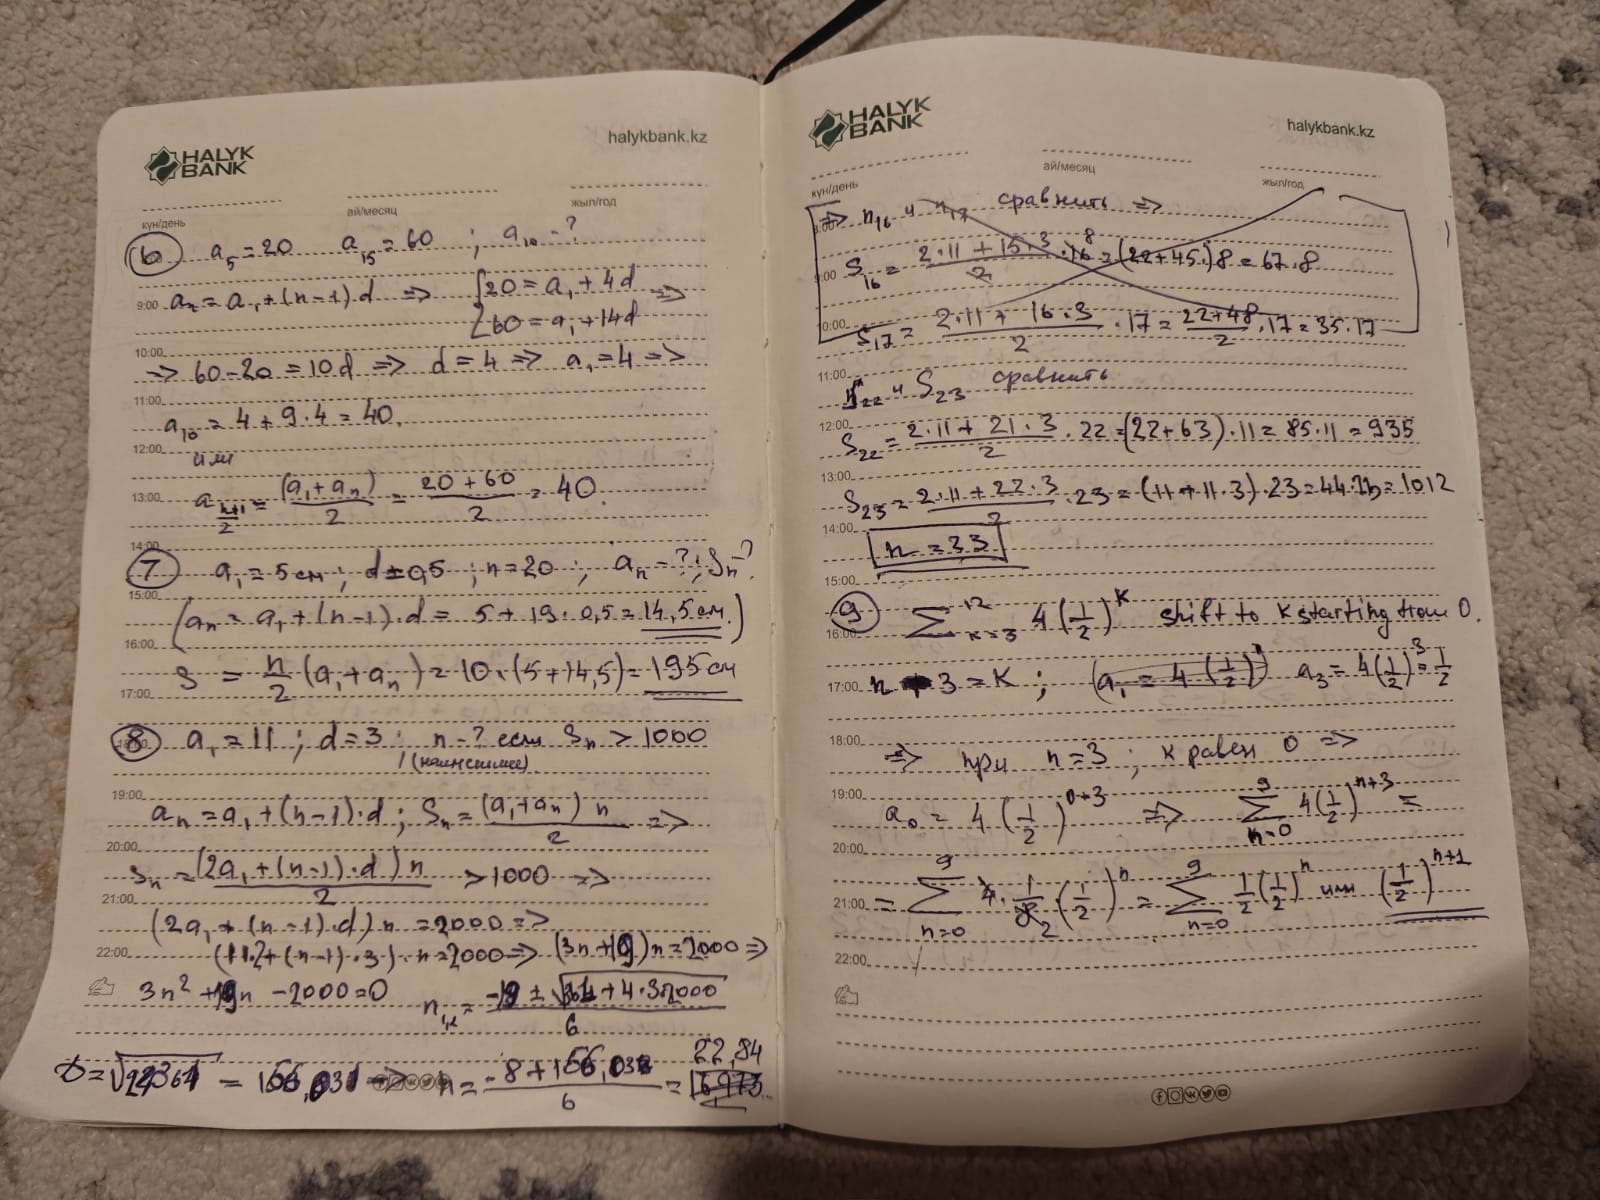 HALYK BANK
halykbank.kz
күн/день ай/месяц жыл/год
6 a₅=20 a₁₅=60 ; a₁₀-?
9:00 aₙ=a₁+(n-1)·d => {20=a₁+4d
{60=a₁+14d =>
10:00
=> 60-20=10d => d=4 => a₁=4 =>
11:00
a₁₀=4+9·4=40.
12:00
или
13:00 a_(n+1)/2 = (a₁+aₙ)/2 = (20+60)/2 = 40.
14:00
7 a₁=5см; d=0,5; n=20; aₙ=?; Sₙ-?
15:00
(aₙ=a₁+(n-1)·d= 5+19·0,5=14,5см.)
16:00
S = n/2 (a₁+aₙ)=10·(5+14,5)=195см
17:00
8 a₁=11; d=3; n-? если Sₙ>1000
18:00
(наименьшее)
19:00
aₙ=a₁+(n-1)·d; Sₙ=(a₁+aₙ)n/2 =>
20:00
Sₙ=(2a₁+(n-1)·d)n/2 >1000 =>
21:00
(2a₁+(n-1)·d)n=2000=>
22:00 (11·2+(n-1)·3)·n=2000=> (3n+19)n=2000=>
3n²+19n-2000=0 n₁,₂=(-19±√361+4·3·2000)/6
D=√24361 = 156,031 => n=(-8+156,031)/6 = 22,84
HALYK BANK
halykbank.kz
күн/день ай/месяц жыл/год
8:00 => n₁₆ и n₁₇ сравнить =>
9:00 S₁₆=(2·11+15·3)/2·16 8=(22+45·)8=67·8
10:00
S₁₇=(2·11+16·3)/2·17=(22+48)/2·17=35·17
11:00
S₂₂ и S₂₃ сравнить
12:00
S₂₂=(2·11+21·3)/2·22=(22+63)·11=85·11=935
13:00
S₂₃=(2·11+22·3)/2·23=(11+11·3)·23=44·23=1012
14:00
n=33
15:00
9 ∑¹²ₖ₌₃ 4(1/2)ᵏ shift to k starting from 0.
16:00
17:00 n+3=k; (a₁=4(1/2)¹) a₃=4(1/2)³=1/2
18:00
=> при n=3; k равен 0 =>
19:00
a₀=4(1/2)⁰⁺³ => ∑⁹ₙ₌₀ 4(1/2)ⁿ⁺³ =
20:00
21:00 = ∑⁹ₙ₌₀ 4·1/8 2·(1/2)ⁿ = ∑⁹ₙ₌₀ 1/2(1/2)ⁿ или (1/2)ⁿ⁺¹
22:00